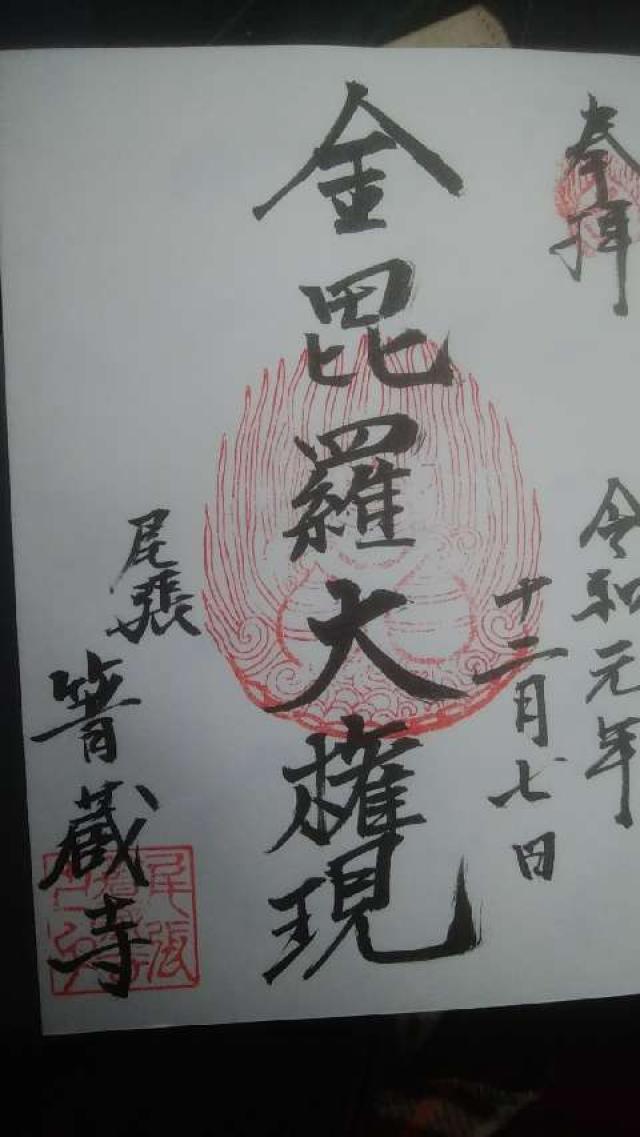 奉拝
令和元年
十二月七日
金毘羅大権現
尾張
箸蔵寺
尾張